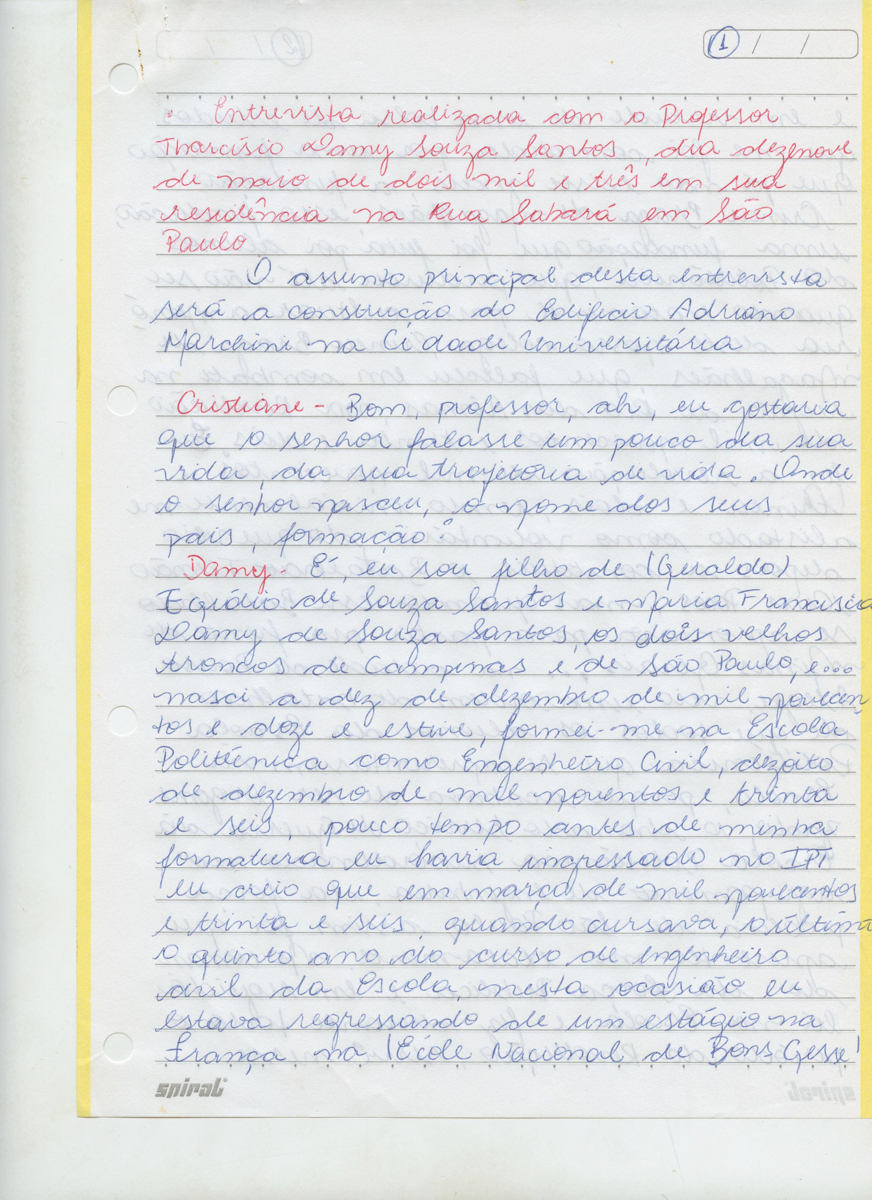 1 / /
Entrevista realizada com o Professor
Tharcísio Damy Souza Santos, dia dezenove
de maio de dois mil e três em sua
residência na Rua Sabará em São
Paulo
O assunto principal desta entrevista
será a construção do Edifício Adriano
Marchini na Cidade Universitária
Cristiane - Bom, professor, ah, eu gostaria
que o senhor falasse um pouco da sua
vida, da sua trajetória de vida. Onde
o senhor nasceu, o nome dos seus
pais, formação?
Damy - É, eu sou filho de (Geraldo)
Egídio de Souza Santos e Maria Francisca
Damy de Souza Santos, os dois velhos
troncos de Campinas e de São Paulo, e...
nasci a dez de dezembro de mil novecen
tos e doze e estive, formei-me na Escola
Politécnica como Engenheiro Civil, dezoito
de dezembro de mil noventos e trinta
e seis, pouco tempo antes de minha
formatura eu havia ingressado no IPT
eu creio que em março de mil novecentos
e trinta e seis, quando cursava, o último
o quinto ano do curso de engenheiro
civil da Escola, nesta ocasião eu
estava regressando de um estágio na
França na (École Nacional de Bons Gesse)
spiral